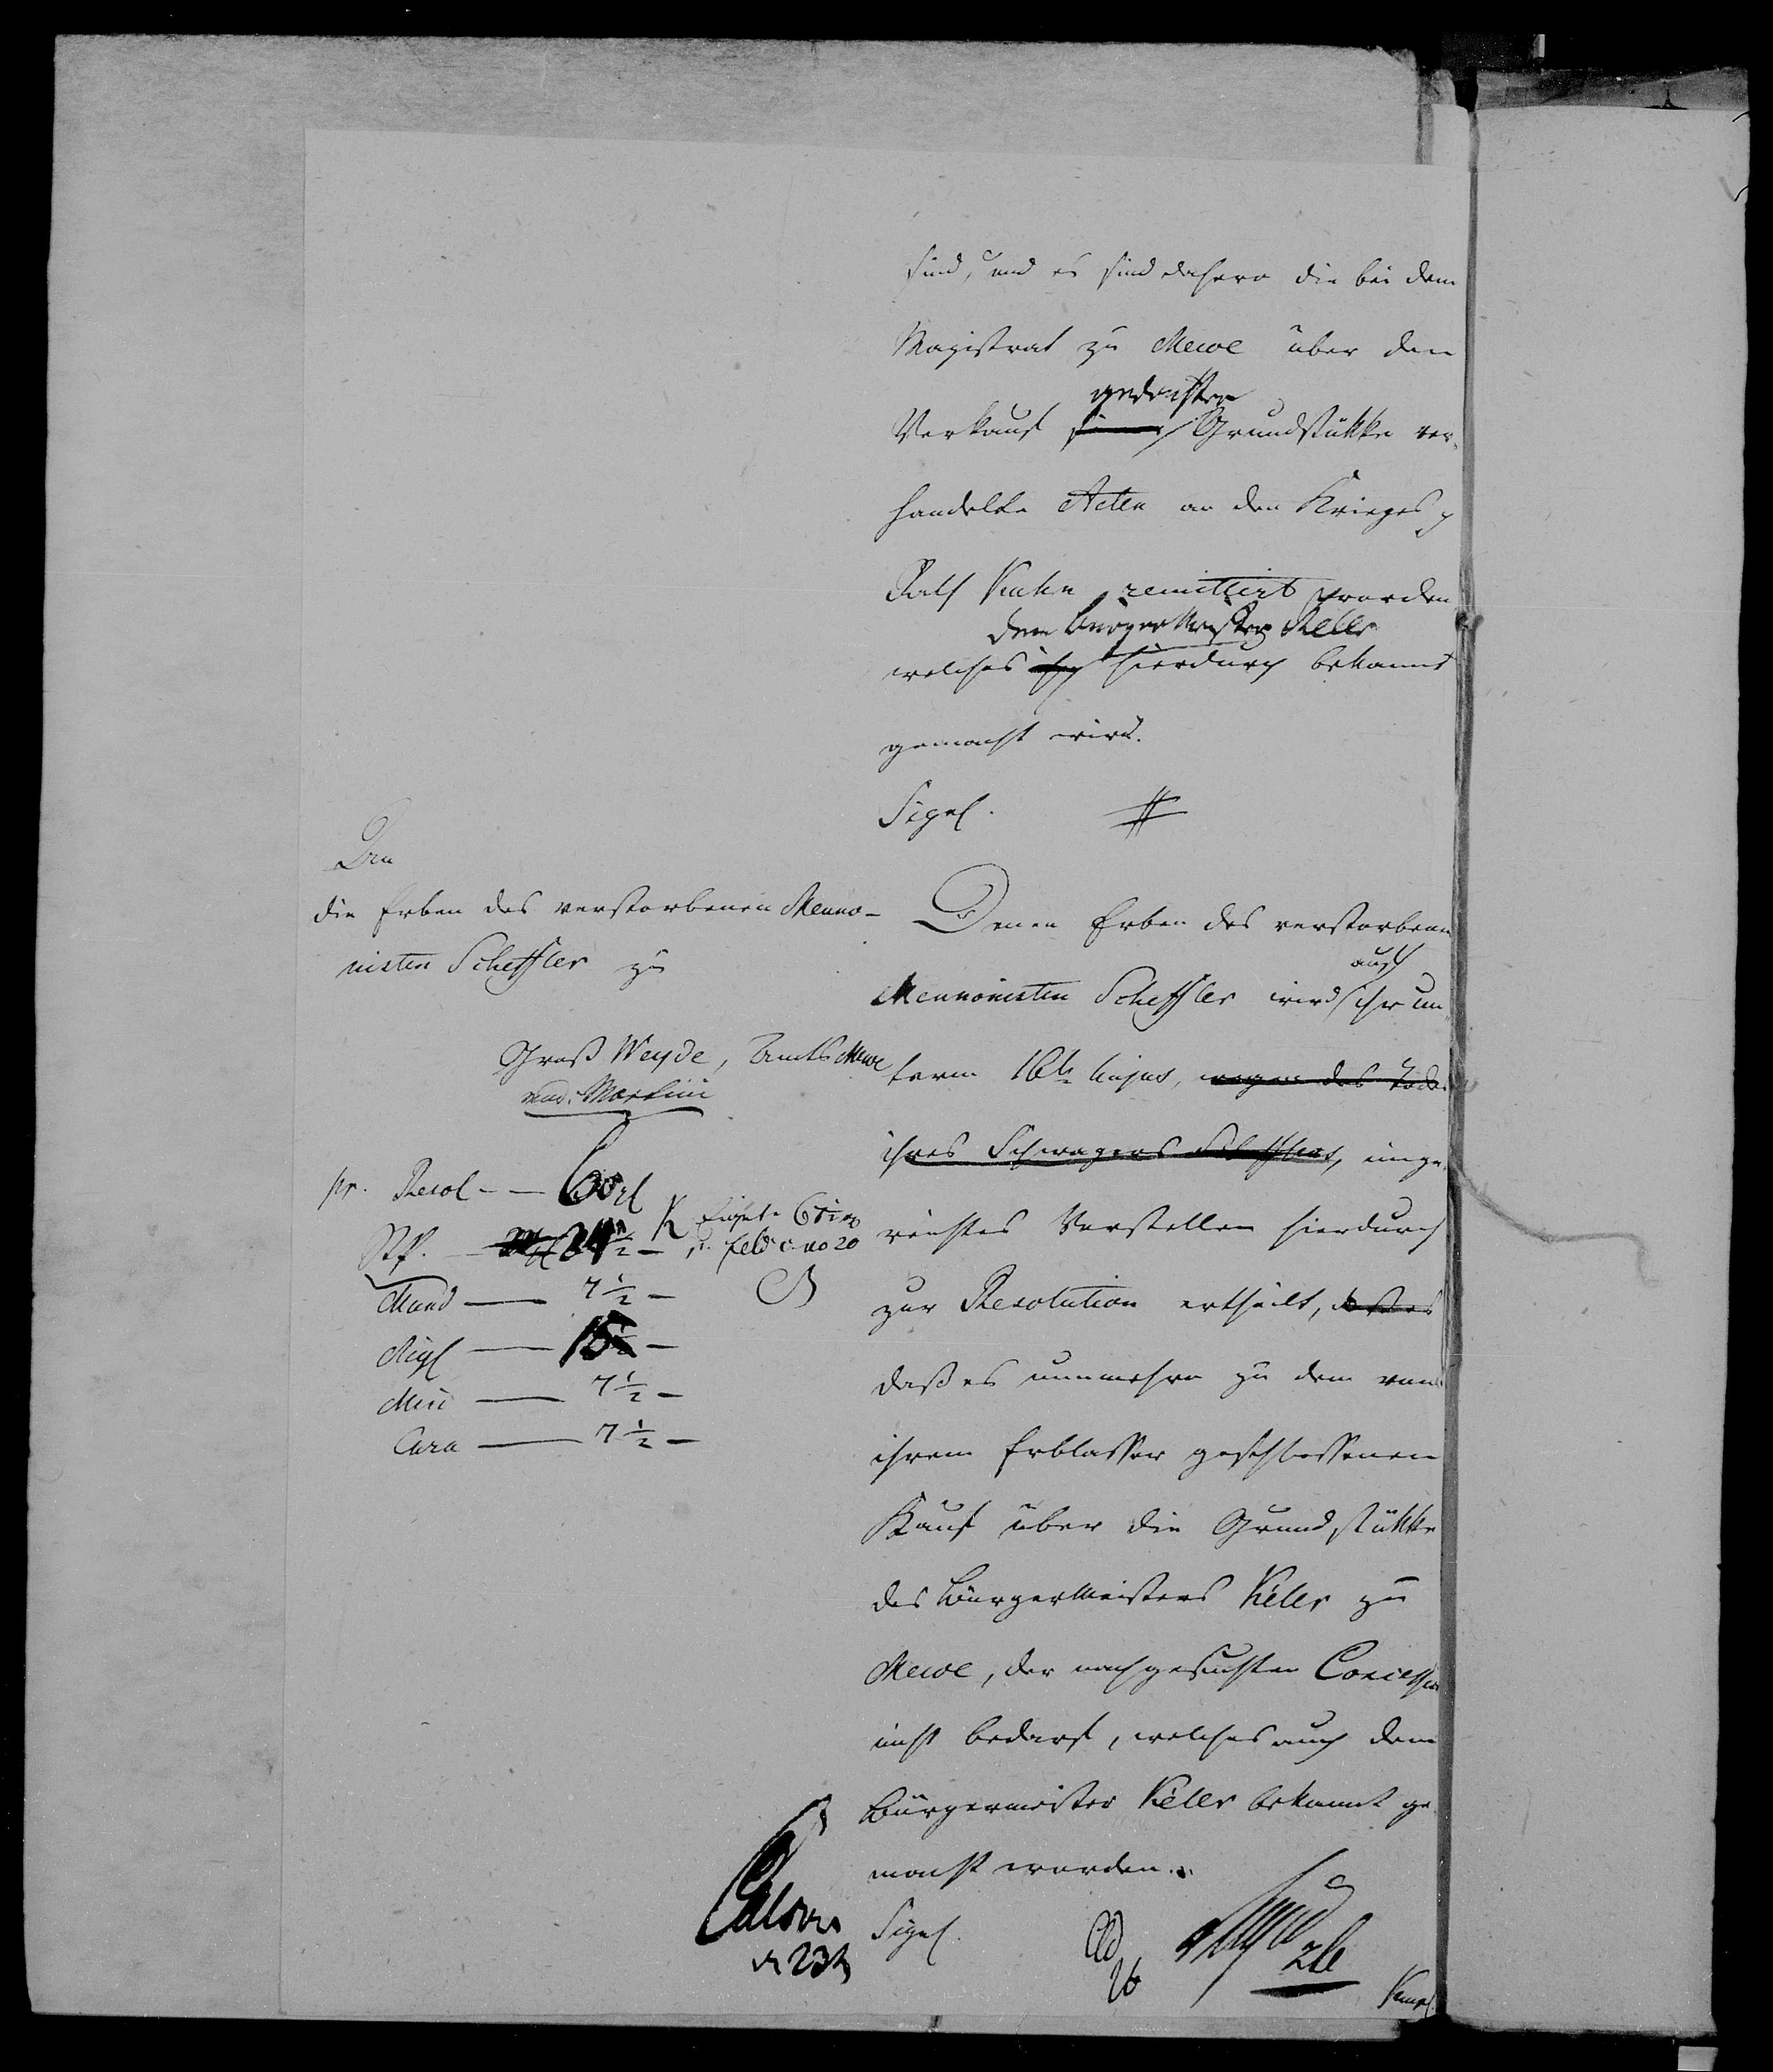 sind, und es sind dahero die bei dem
Magistrat zu Mewe über den
gedachter
Verkauf seiner Grundstükke ver-
handelte Acten an den Krieges
Rath remittirt worden
dem BürgerMeister Keller
welches ihm hierdurch bekannt
gemacht wird.
Sigl.
An
die Erben des verstorbenen Menno-
nisten Scheffler zu
Groß Weyde, Amts Mewe
mand. Martini
pr. Resol - - 60 gl
Stp. 24 1/2 -
Mund — 7 1/2 -
Sigl — 15 -
Min — 7 1/2 -
Cura — 7 1/2 -
Denen Erben des verstorbenen
auf
Mennonisten Scheffler wird ihr un-
term 16t hujus, wegen des Todes
ihres Schwagers Schefflers, einge-
reichtes Vorstellen hierdurch
zur Resolution ertheilt, daß es
daß es nunmehro zu dem von
ihrem Erblasser geschlossenen
Kauf über die Grundstükke
des BürgerMeisters Keller zu
Mewe, der nachgesuchten Concession
nicht bedarf, welches auch dem
Bürgermeister Keller bekannt ge-
macht worden.
Sigl.